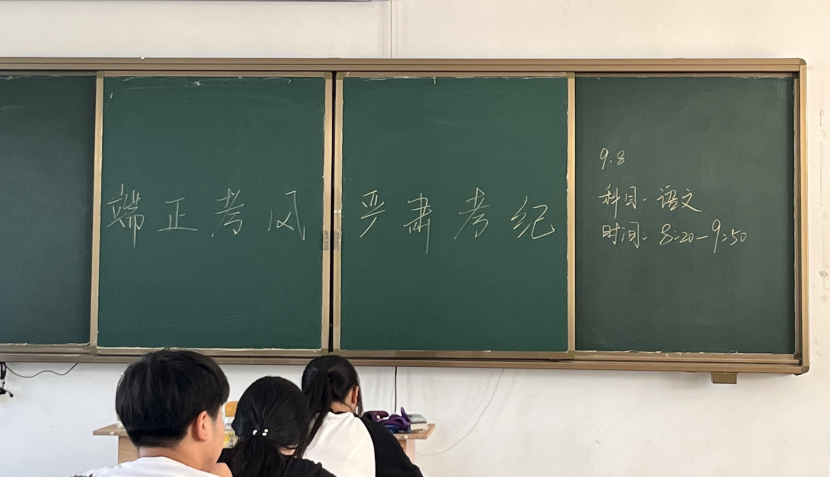 端正考风 严肃考纪
9.8
科目:语文
时间:8:20-9:50